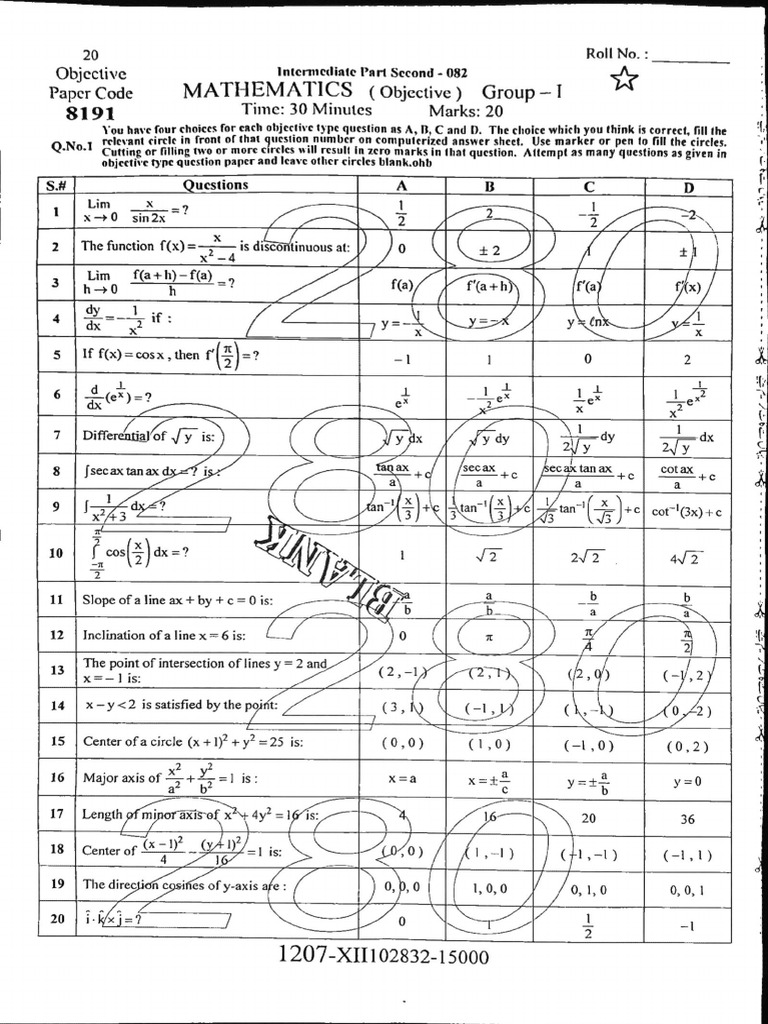 20
Objective
Paper Code
8191
Roll No. :
Intermediate Part Second - 082
MATHEMATICS ( Objective ) Group – I
Time: 30 Minutes Marks: 20
Q.No.1 You have four choices for each objective type question as A, B, C and D. The choice which you think is correct, fill the
relevant circle in front of that question number on computerized answer sheet. Use marker or pen to fill the circles.
Cutting or filling two or more circles will result in zero marks in that question. Attempt as many questions as given in
objective type question paper and leave other circles blank.ohb
S.# Questions A B C D
1 Lim x→0 x/sin 2x = ? 1/2 2 -1/2 -2
2 The function f(x) = x/(x²-4) is discontinuous at: 0 ± 2 1 ± 1
3 Lim h→0 (f(a+h)-f(a))/h = ? f(a) f'(a+h) f'(a) f'(x)
4 dy/dx = -1/x² if : y = -1/x y = -x y = ℓnx y = 1/x
5 If f(x) = cos x, then f'(π/2) = ? -1 1 0 2
6 d/dx (e^(1/x)) = ? e^(1/x) -1/x² e^(1/x) 1/x e^(1/x) 1/x² e^(1/x²)
7 Differential of √y is: √y dx √y dy 1/(2√y) dy 1/(2√y) dx
8 ∫sec ax tan ax dx = ? is : tan ax/a + c sec ax/a + c sec ax tan ax/a + c cot ax/a + c
9 ∫ 1/(x²+3) dx = ? tan⁻¹(x/3) + c 1/3 tan⁻¹(x/3) + c 1/√3 tan⁻¹(x/√3) + c cot⁻¹(3x) + c
10 ∫_{-π/2}^{π/2} cos(x/2) dx = ? 1 √2 2√2 4√2
BLANK
11 Slope of a line ax + by + c = 0 is: -a/b a/b -b/a b/a
12 Inclination of a line x = 6 is: 0 π π/4 π/2
13 The point of intersection of lines y = 2 and
x = -1 is: (2,-1) (2,1) (2,0) (-1,2)
14 x - y < 2 is satisfied by the point: (3,1) (-1,1) (1,-1) (0,-2)
15 Center of a circle (x+1)² + y² = 25 is: (0,0) (1,0) (-1,0) (0,2)
16 Major axis of x²/a² + y²/b² = 1 is : x = a x = ±a/c y = ±a/b y = 0
17 Length of minor axis of x² + 4y² = 16 is: 4 16 20 36
18 Center of (x-1)²/4 - (y+1)²/16 = 1 is: (0,0) (1,-1) (-1,-1) (-1,1)
19 The direction cosines of y-axis are : 0, 0, 0 1, 0, 0 0, 1, 0 0, 0, 1
20 î · k̂ × ĵ = ? 0 1 1/2 -1
280
280
280
280
1207-XII102832-15000